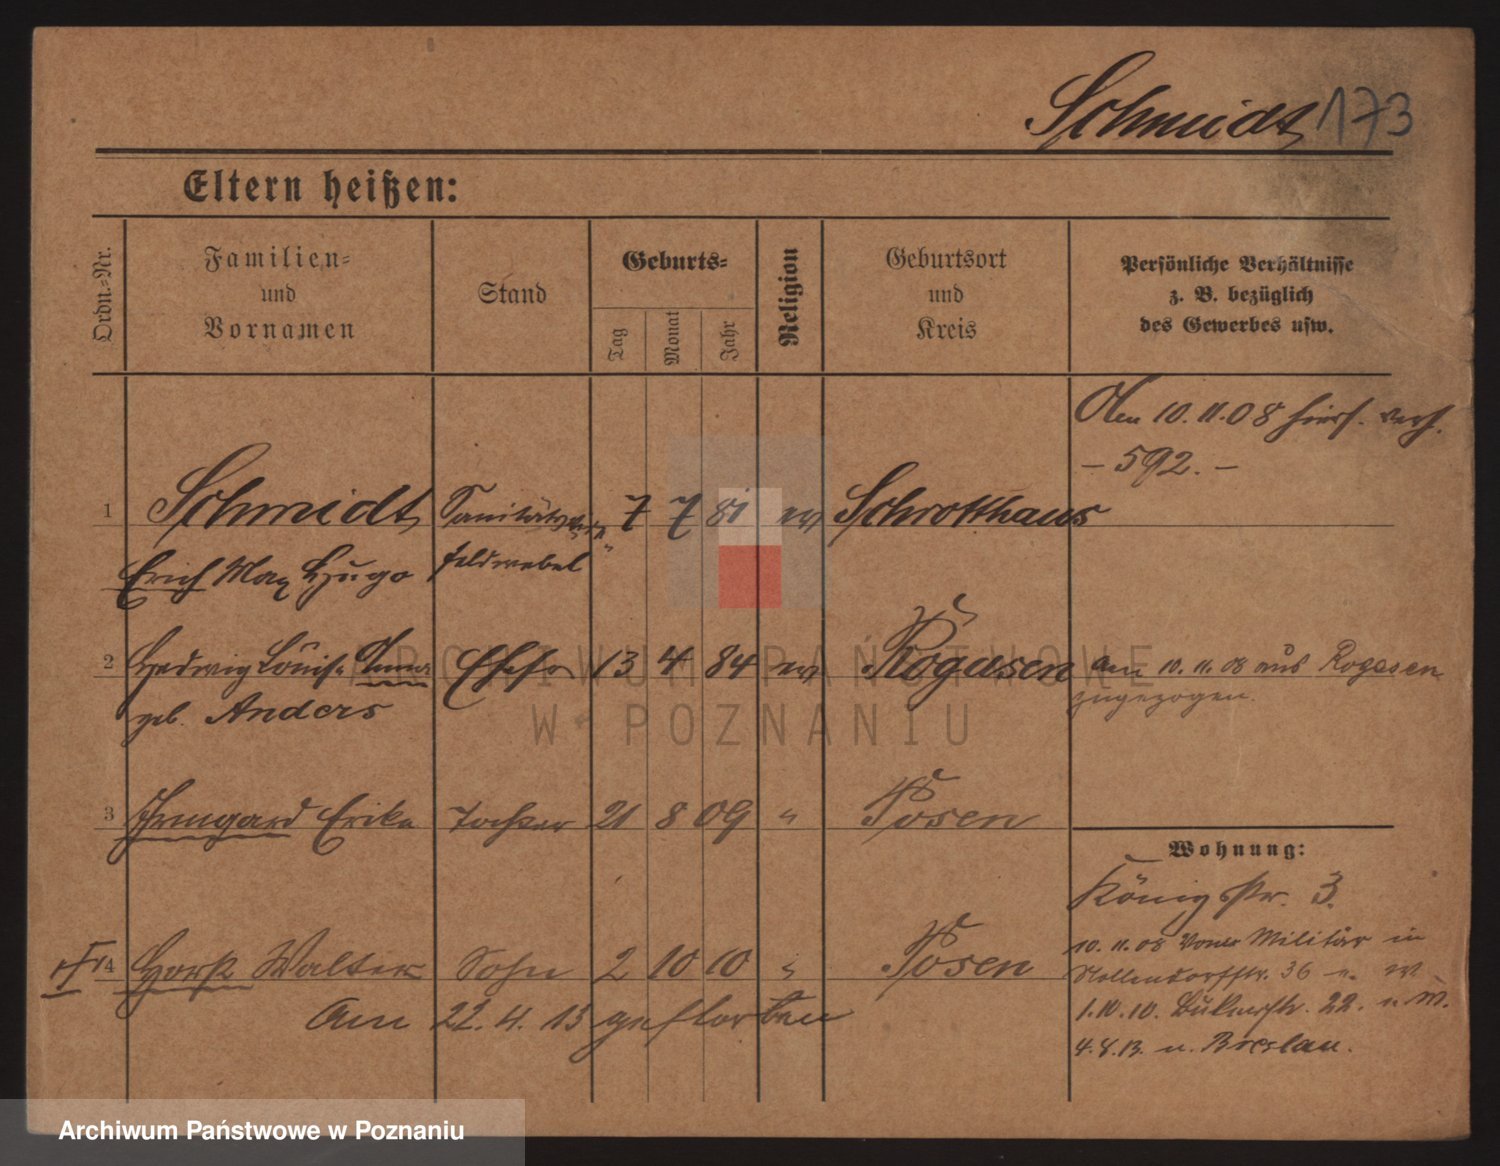 Schmidt 173
Eltern heißen:
Ordn.-Nr.
Familien-
und
Vornamen
Stand
Geburts-
Tag
Monat
Jahr
Religion
Geburtsort
und
Kreis
Persönliche Verhältnisse
z. B. bezüglich
des Gewerbes usw.
10.11.08
- 592. -
1 Schmidt Sanitäts 7 7 81 ev Schrotthaus
Erich Max Hugo feldwebel
2 Hedwig Louise Anna Ehefr 13 4 84 ev Rogasen am 10.11.08 aus Rogasen
geb. Anders zugezogen.
3 Irmgard Erika Tochter 21 8 09 " Posen
Wohnung:
Königstr. 3.
4 Horst Walter Sohn 2 10 10 " Posen
10.11.08 vom Militär in
Nollendorfstr. 36
am 22.4.13 gestorben
1.10.10. 22.
4.8.13. n. Breslau.
ARCHIWUM PAŃSTWOWE
W POZNANIU
Archiwum Państwowe w Poznaniu